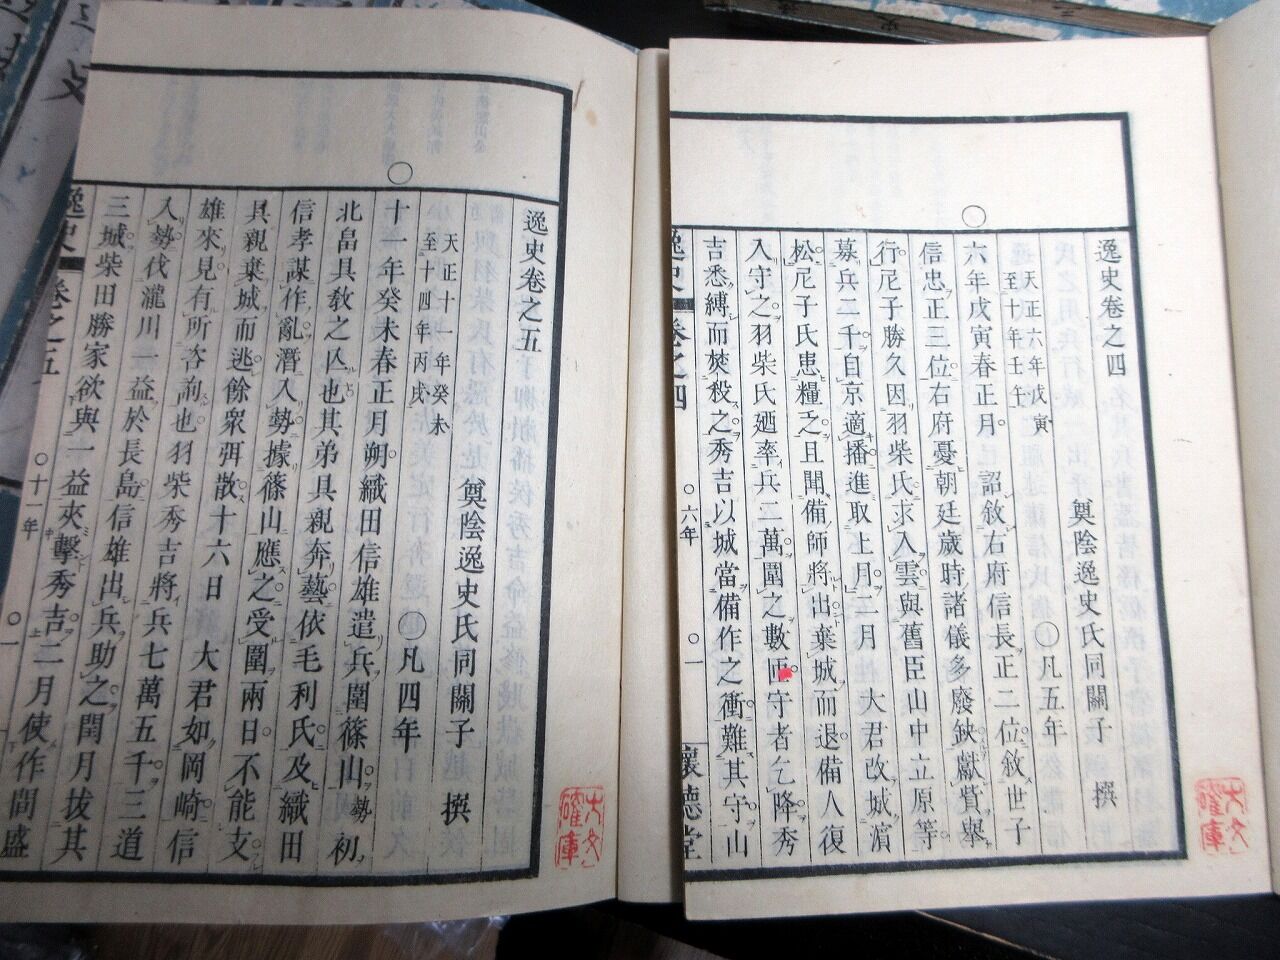 逸史卷之四
天正六年戊寅
至十年壬午
〇凡五年
奠陰逸史氏同關子 撰
六年戊寅春正月 詔敘右府信長正二位敘世子
信忠正三位右府憂朝廷歲時諸儀多廢缺獻貲舉
行尼子勝久因羽柴氏求入雲與舊臣山中立原等
募兵二千自京適播進取上月二月 大君改城濵
松尼子氏患糧乏且聞備師將出棄城而退備人復
入守之羽柴氏廼率兵二萬圍之數匝守者乞降秀
吉悉縛而燓殺之秀吉以城當備作之衝難其守山
逸史 卷之四 〇六年 〇一 懷德堂
逸史卷之五
天正十一年癸未
至十四年丙戌
〇凡四年
奠陰逸史氏同關子 撰
十一年癸未春正月朔織田信雄遣兵圍篠山勢初
北畠具敎之亾也其弟具親奔藝依毛利氏及織田
信孝謀作亂潛入勢據篠山應之受圍兩日不能支
具親棄城而逃餘衆弭散十六日 大君如岡崎信
雄來見有所咨詢也羽柴秀吉將兵七萬五千三道
入勢伐瀧川一益於長島信雄出兵助之閏月拔其
三城柴田勝家欲與一益夾擊秀吉二月使作間盛
逸史 卷之五 〇十一年 〇一